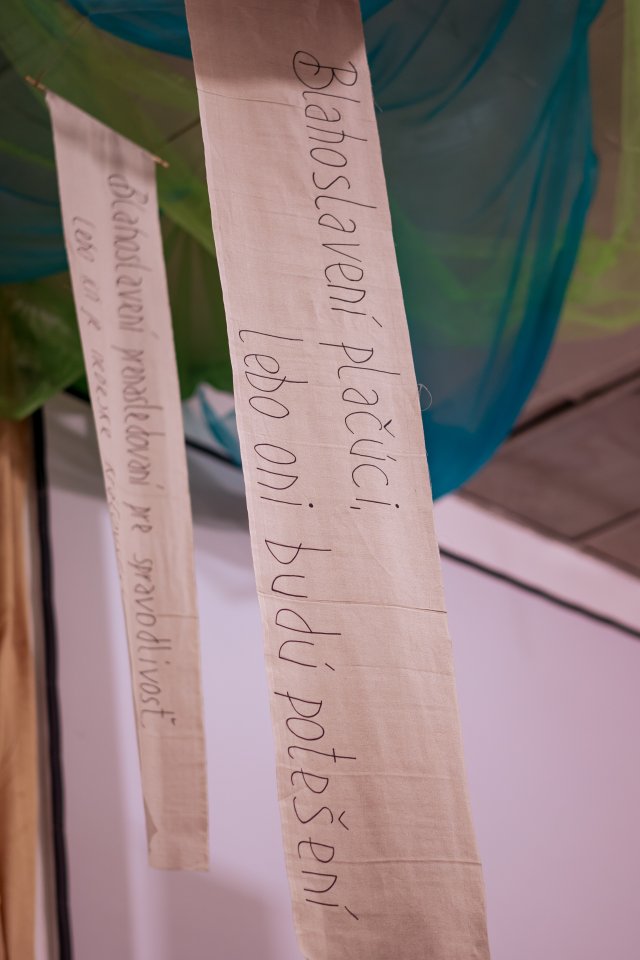 Blahoslavení plačúci,
lebo oni budú potešení
Blahoslavení prenasledovaní pre spravodlivosť
lebo ich je nebeské